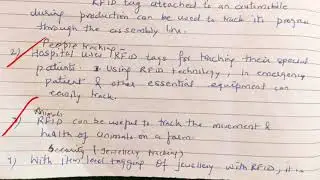 RFID tag attached to an automobile
during production can be used to track its progress
through the assembly line.
People tracking -
2) Hospital uses RFID tags for tracking their special
patients. Using RFID technology, in emergency
patient & other essential equipment can
easily track.
Animals
3) RFID can be useful to track the movement &
health of animals on a farm.
Security (jewellery tracking)
4) With item level tagging of jewellery with RFID, it is